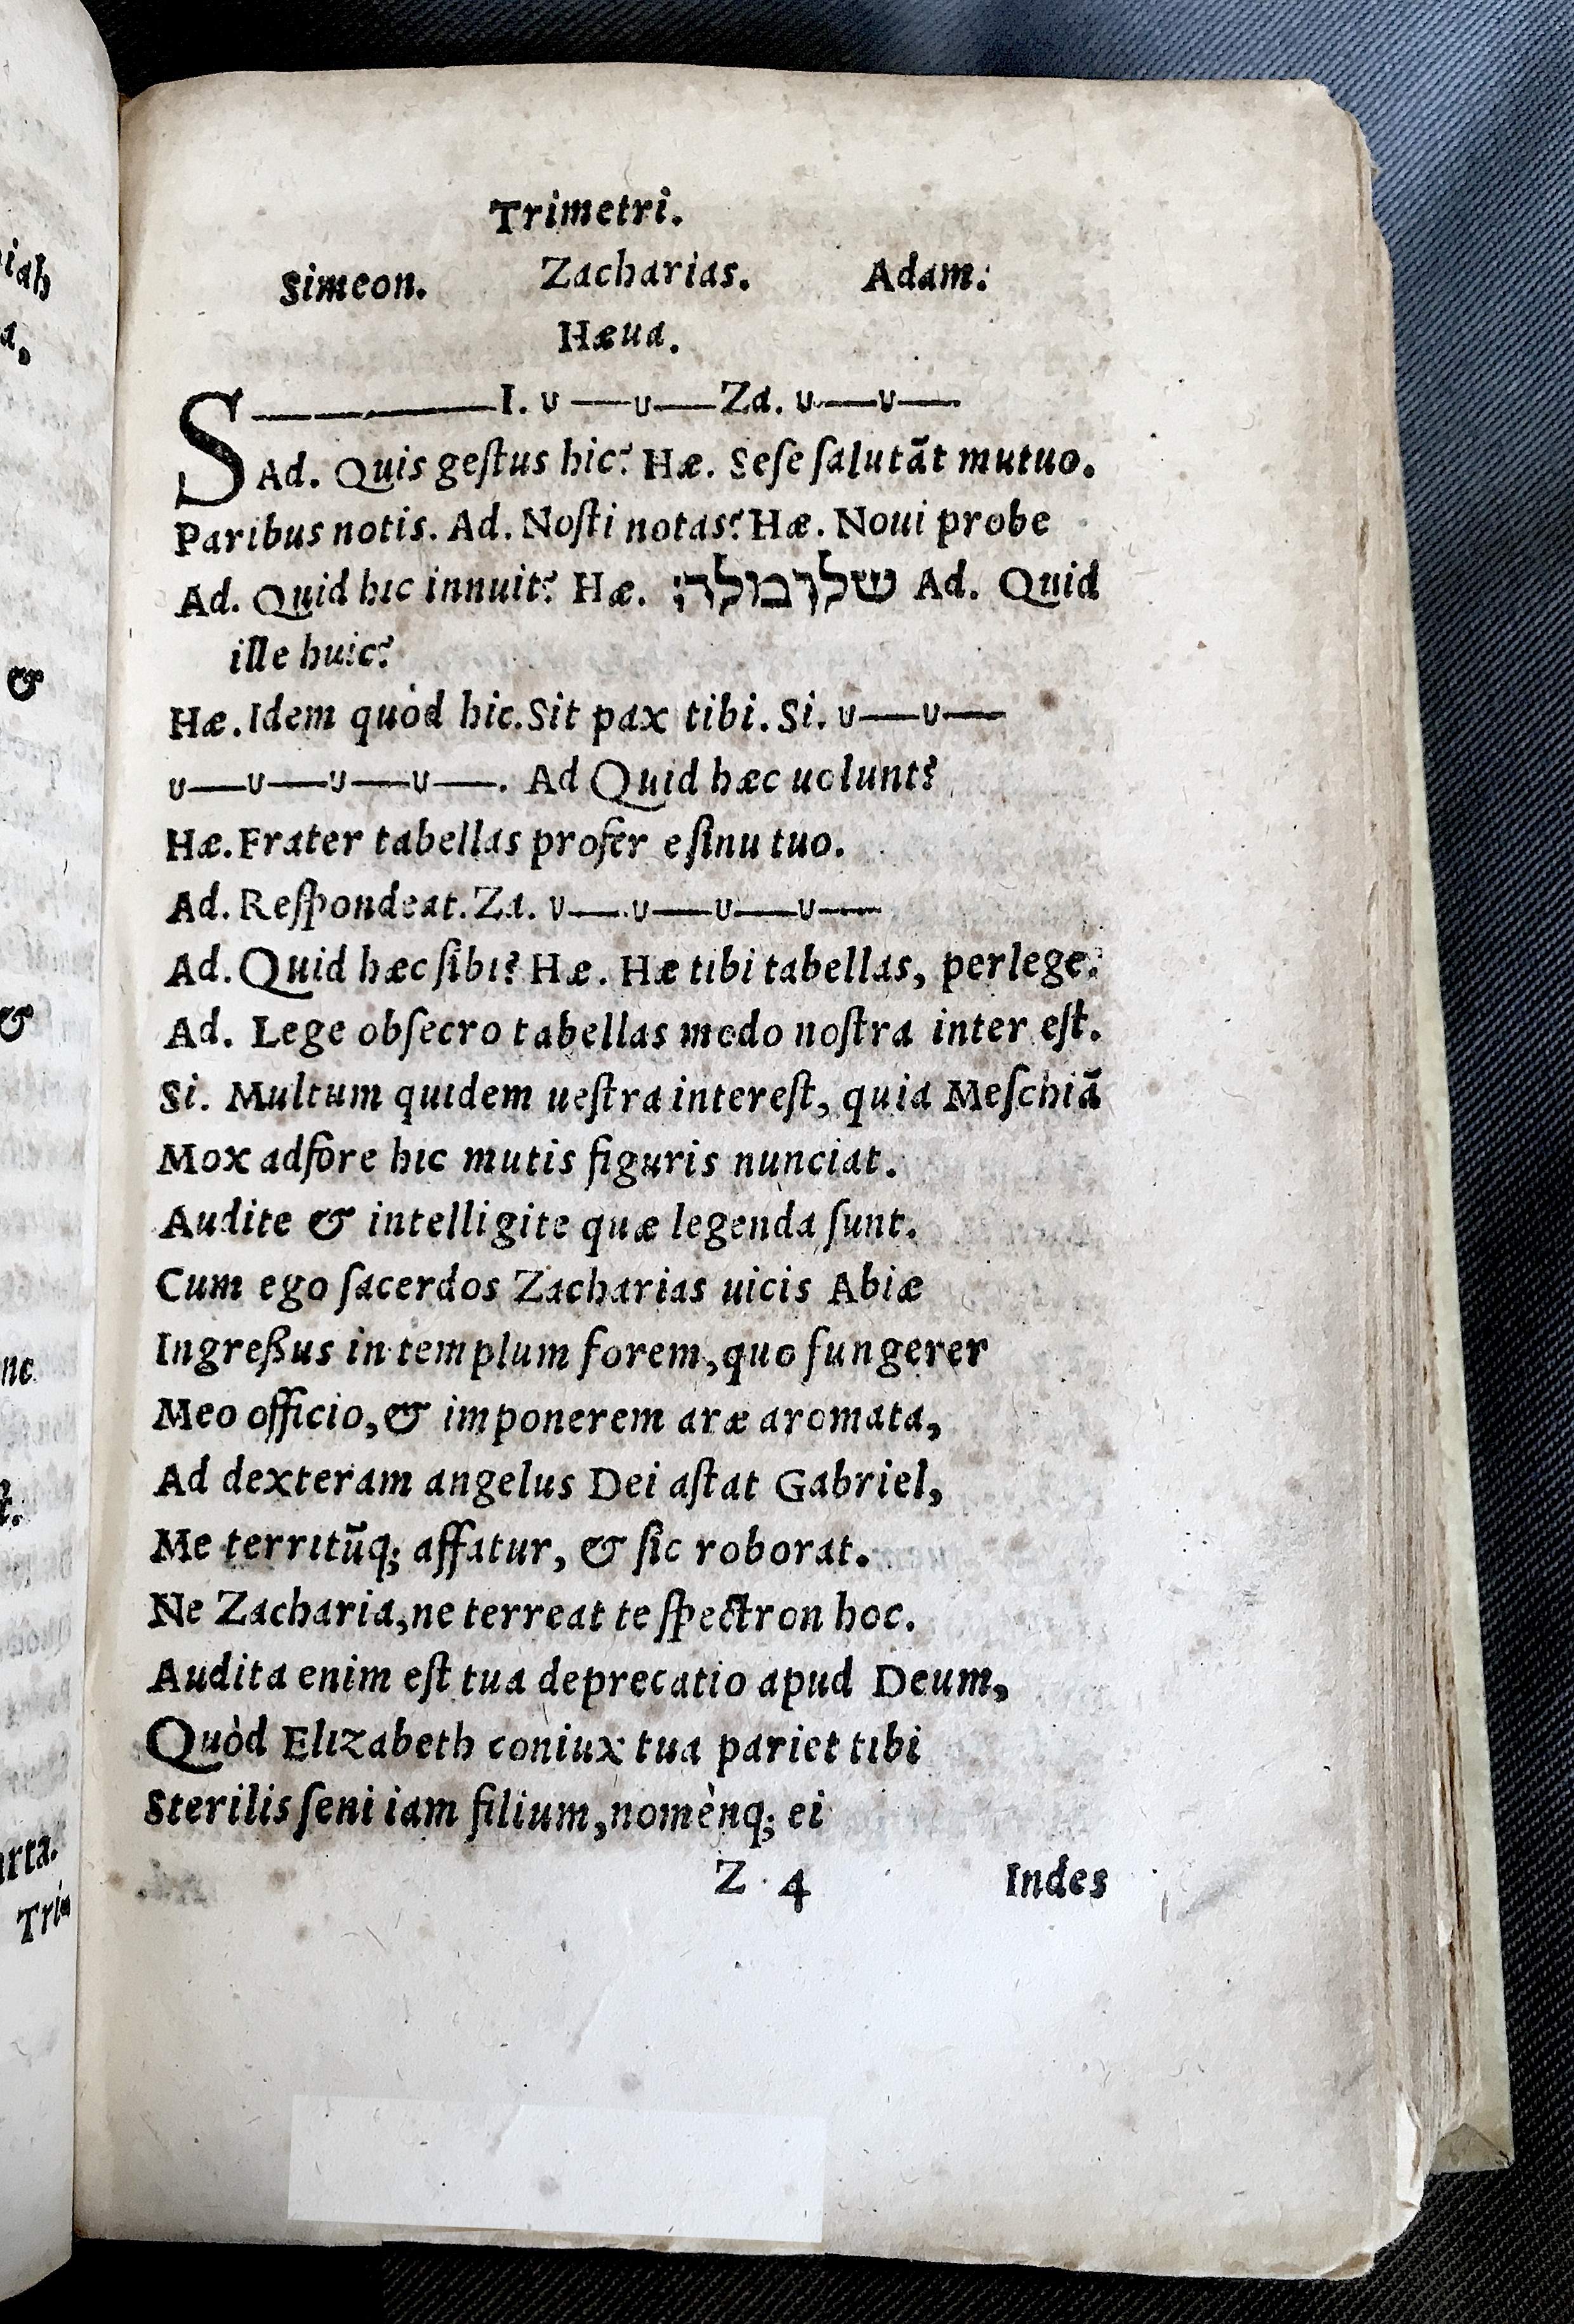 Trimetri.
Simeon. Zacharias. Adam.
Hæua.
S ————I. u —u—Za. u—u—
Ad. Quis geſtus hic? Hæ. Seſe ſalutãt mutuo.
Paribus notis. Ad. Noſti notas? Hæ. Noui probe
Ad. Quid hic innuit? Hæ. Ad. Quid
ille huic?
Hæ. Idem quòd hic. Sit pax tibi. Si. u—u—
u—u—u—u—. Ad Quid hæc uolunt?
Hæ. Frater tabellas profer e ſinu tuo.
Ad. Reſpondeat. Za. u—u—u—u—
Ad. Quid hæc ſibi? Hæ. Hæ tibi tabellas, perlege.
Ad. Lege obſecro tabellas modo noſtra inter eſt.
Si. Multum quidem ueſtra intereſt, quia Meſchiã
Mox adfore hic mutis figuris nunciat.
Audite & intelligite quæ legenda ſunt.
Cum ego ſacerdos Zacharias uicis Abiæ
Ingreßus in templum forem, quo fungerer
Meo officio, & imponerem aræ aromata,
Ad dexteram angelus Dei aſtat Gabriel,
Me territũq; affatur, & ſic roborat.
Ne Zacharia, ne terreat te ſpectron hoc.
Audita enim eſt tua deprecatio apud Deum,
Quòd Elizabeth coniux tua pariet tibi
Sterilis ſeni iam filium, nomènq; ei
Z 4 Indes